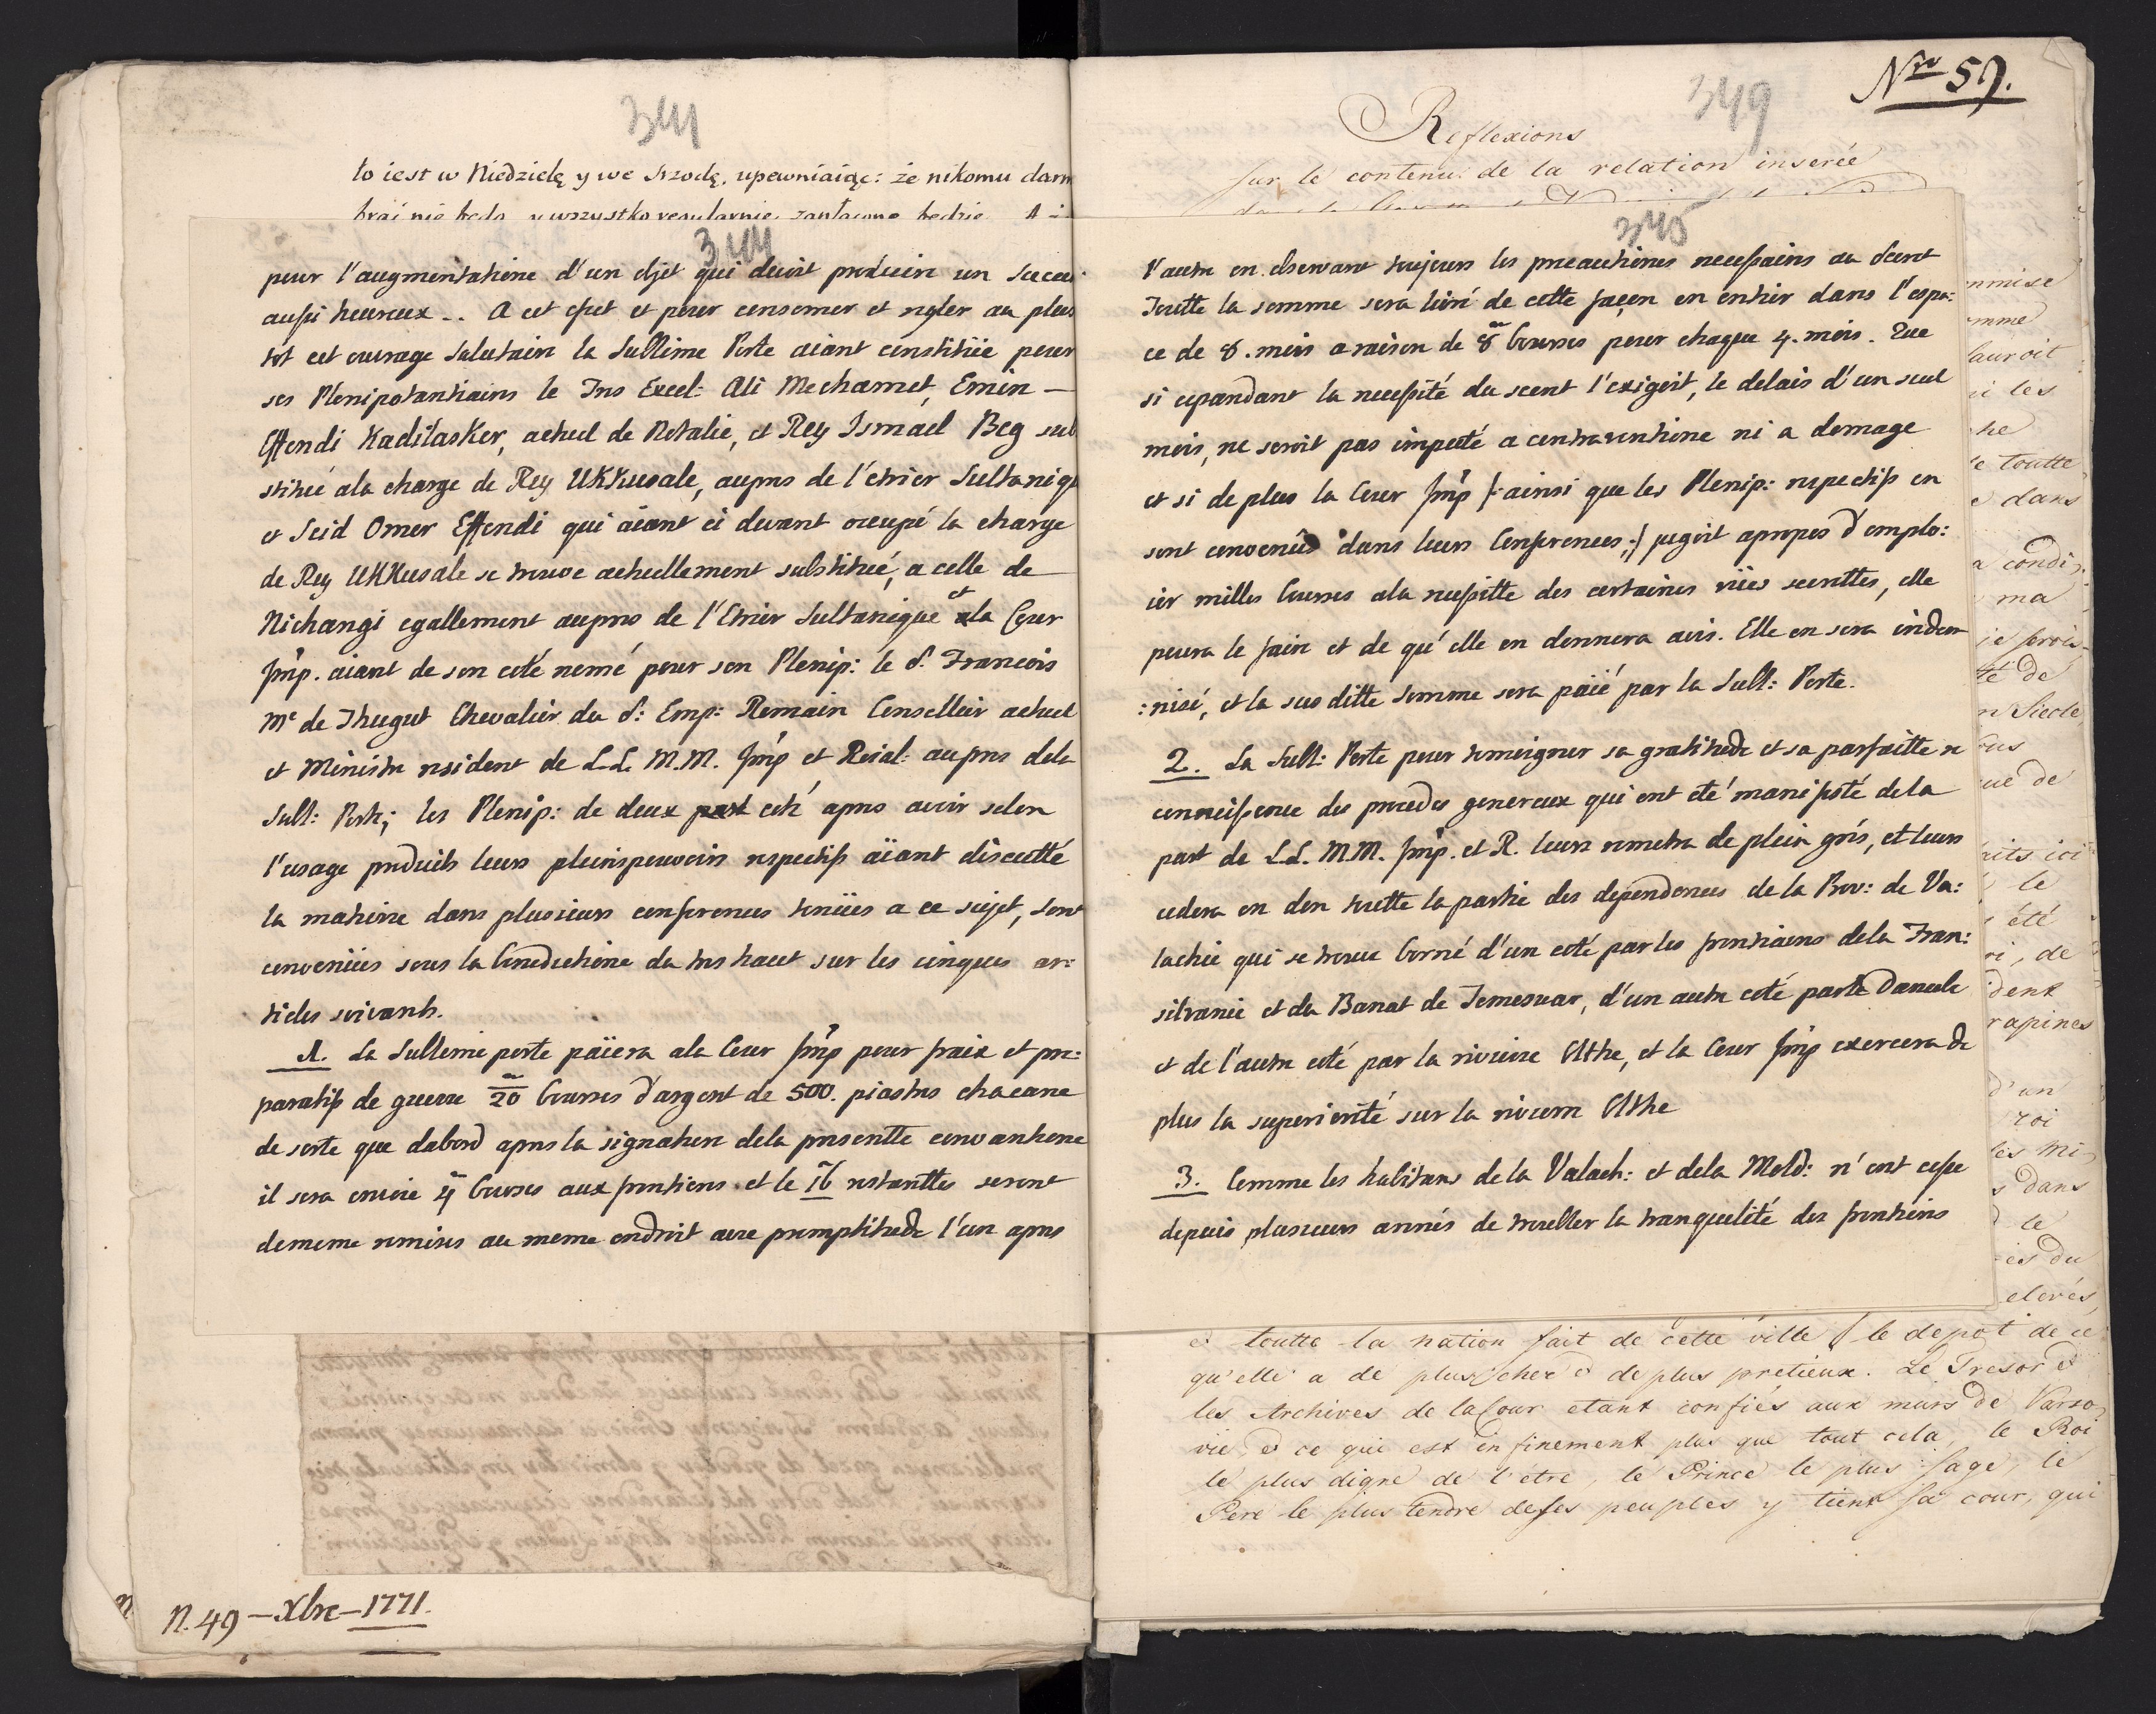 341
to iest w Niedzielę y we Srzodę, upewniaiąc: że nikomu darm
brać nie będą, y wszystko regularnie zapłacono będzie. A i
344
pour l'augmentatione d'un objet qui devoit produire un succes
aussi heureux -. A cet effet et pour consomer et regler au plus
tot cet ouvrage salutaire la Sublime Porte aiant constitüée pour
ses Plenipotantiaires le Tres Excel: Ali Mechamet, Emin —
Effendi Kadilasker, actuel de Notalie, et Rey Ismael Beg sub
stitué a la charge de Rey UKKusale, aupres de l'étrier Sultanique
et Seid Omer Effendi qui aiant ci devant occupé la charge
de Rey UKKusale se trouve actuellement substitué, a celle de
Nichangi egallement aupres de l'Etrier Sultanique et la Cour
Imp. aiant de son coté nomé pour son Plenip: le S. Francois
Me de Thugut Chevalier du S: Emp: Romain Conseller actuel
et Ministre resident de L.L. M.M. Imp et Roial: aupres dela
Subl: Porte; les Plenip: de deux coté apres avoir selon
l'usage produits leurs pleinspouvoirs respectifs aïant discutté
la matiere dans plusieurs conferences tenües a ce sujet, sont
convenües sous la Conductione du tres haut sur les cinques ar:
ticles suivants.
1. La Sublime porte païera a la Cour Imp pour fraix et pre:
paratifs de guerre 20 bourses d'argent de 500. piastres chacune
de sorte que dabord apres la signature dela presentte convantione
il sera envoié 4 bourses aux frontieres et le 16 restanttes seront
dememe remises au meme endroit avec promptitude l'un apres
N. 49 — Xbre — 1771.
Nro 57.
349
Reflexions
sur le contenu de la relation inserée
345
l'autre en observant toujours les precautiones necessaires au secret
Toutte la somme sera livré de cette façon en entier dans l'espa:
ce de 8. mois a raison de 8 bourses pour chaque 4. mois. Que
si cepandant la necessité du secret l'exigeoit, le delais d'un seul
mois, ne seroit pas imputé a contraventione ni a domage
et si de plus la Cour Imp /: ainsi que les Plenip: respectifs en
sont convenûs dans leurs Conferences, :/ jugoit apropos d'emplo:
ier milles bourses a la necessitte des certaines vües secrettes, elle
poura le faire et de qu'elle en donnera avis. Elle en sera indem
:nisé, et la sus ditte somme sera païé par la Subl: Porte.
2. La Subl: Porte pour temoigner sa gratitude et sa parfaitte re
connoissence des procedes genereux qui ont eté manifesté dela
part de L.L. MM. Imp. et R. leurs remetra de plein grés, et leurs
cedera en don toutte la partie des dependences de la Prov: de Va:
lachie qui se trouve borné d'un coté par les frontiaires dela Tran:
silvanie et du Banat de Temesvar, d'un autre coté par le Danube
et de l'autre coté par la riviere Olthe, et la Cour Imp exercera de
plus la superiorité sur la riviere Olthe
3. Comme les habitans de la Valach: et dela Mold: n'ont cessé
depuis plusieurs annés de troubler la tranquilité des frontiers
mmise
mme
sauroit
i les
he
e toutte
dans
a condi
ma
té de
n Siecle
ue de
aits ici
le
été
ri, de
dent
rapines
d'un
roi
les Mi
dans
le
es du
elevés,
et toutte la nation fait de cette ville le depot de ce
qu'elle a de plus cher et de plus pretieux. Le Tresor et
les Archives de la Cour etant confiés aux murs de Varso
vie, et ce qui est infinement plus que tout cela, le Roi
le plus digne de l'étre, le Prince le plus sage, le
Pere le plus tendre deses peuples y tient sa cour, qui